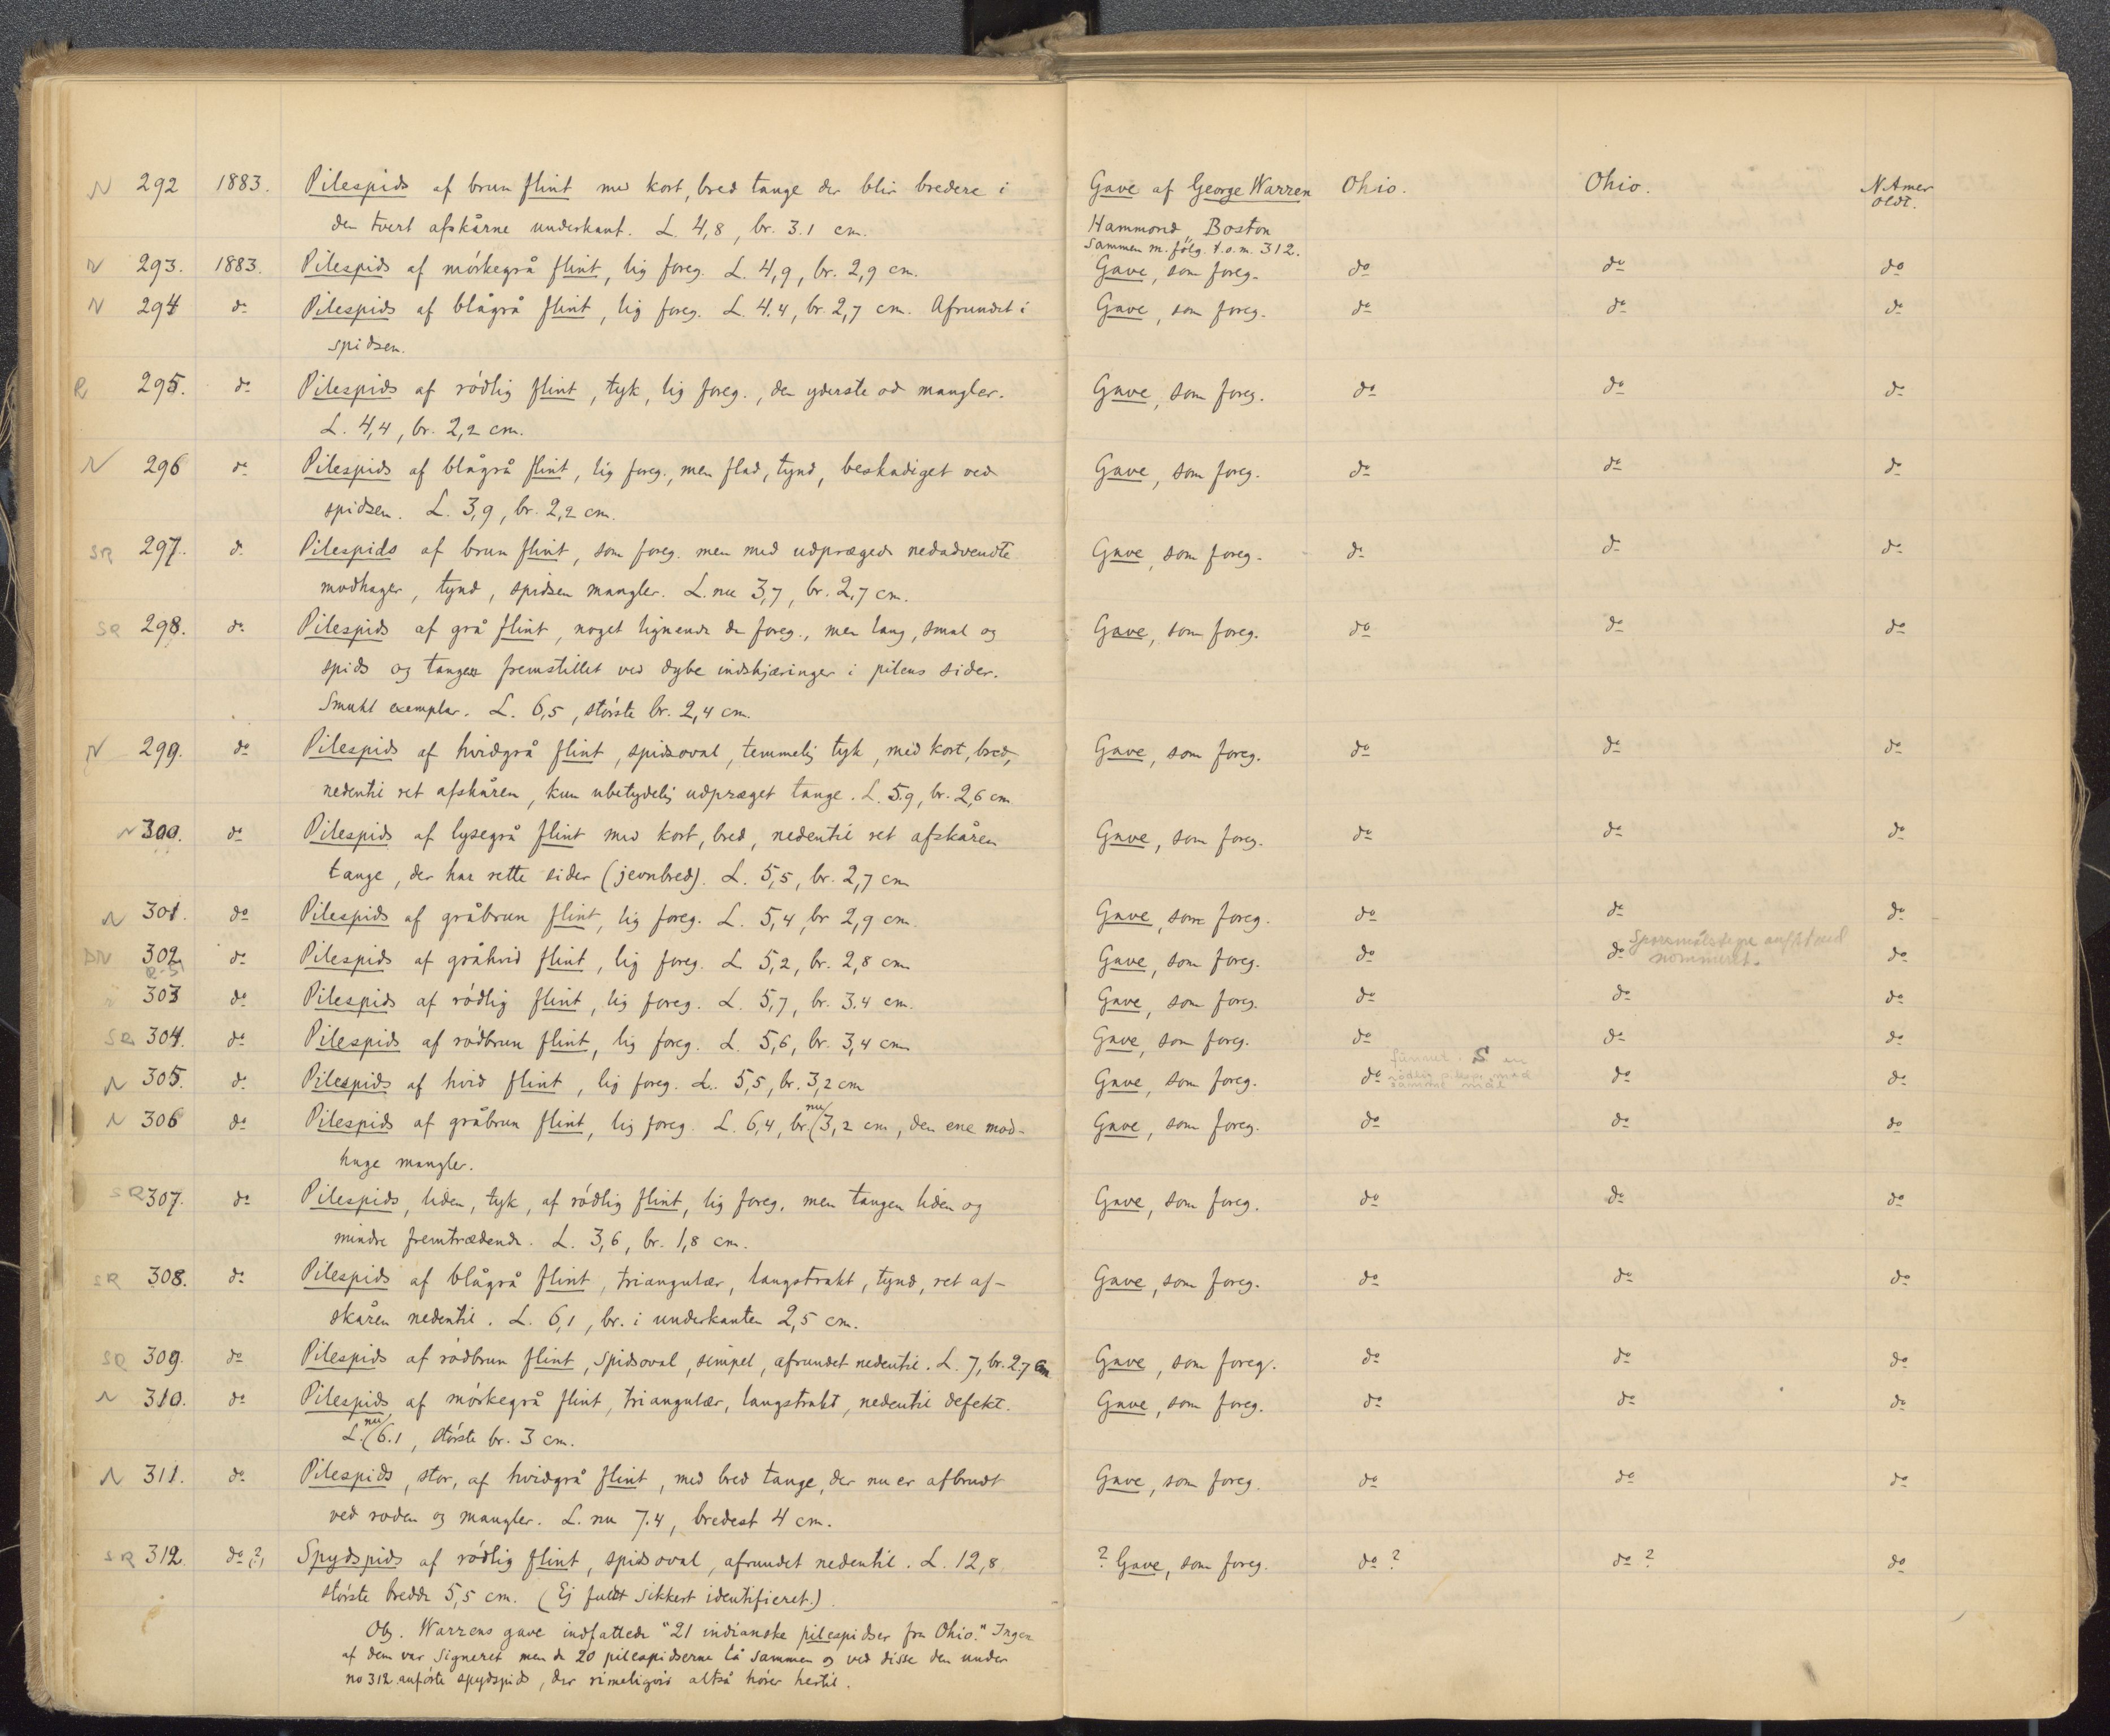 N 292 1883. Pilespids af brun flint med kort, bred tange der blir bredere i Gave af George Warren Ohio. Ohio. N.Amer
den tvert afskårne underkant. L. 4,8, br. 3.1 cm. Hammond, Boston oldt.
sammen m. følg. t.o.m. 312.
N 293. 1883. Pilespids af mörkegrå flint, lig foreg. L. 4,9, br. 2,9 cm. Gave, som foreg. do do do
N 294 do Pilespids af blågrå flint, lig foreg. L. 4.4, br. 2,7 cm. Afrundet i Gave, som foreg. do do do
spidsen.
R 295. do Pilespids af rödlig flint, tyk, lig foreg., den yderste od mangler. Gave, som foreg. do do do
L. 4,4, br. 2,2 cm.
N 296 do Pilespids af blågrå flint, lig foreg., men flad, tynd, beskadiget ved Gave, som foreg. do do do
spidsen. L. 3,9, br. 2,2 cm.
SR 297. do Pilespids af brun flint, som foreg. men med udprægede nedadvendte Gave, som foreg. do do do
modhager, tynd, spidsen mangler. L. nu 3,7, br. 2,7 cm.
SR 298. do Pilespids af grå flint, noget lignende de foreg., men lang, smal og Gave, som foreg. do do do
spids og tangen fremstillet ved dybe indskjæringer i pilens sider.
Smukt exemplar. L. 6,5, störste br. 2,4 cm.
N 299. do Pilespids af hvidgrå flint, spidsoval, temmelig tyk, med kort, bred, Gave, som foreg. do do do
nedentil ret afskåren, kun ubetydelig udpræget tange. L. 5.9, br. 2,6 cm
N 300. do Pilespids af lysegrå flint med kort, bred, nedentil ret afskåren Gave, som foreg. do do do
tange, der har rette sider (jevnbred). L. 5,5, br. 2,7 cm
N 301. do Pilespids af gråbrun flint, lig foreg. L. 5,4, br 2,9 cm. Gave, som foreg. do do do
302. do Pilespids af gråhvid flint, lig foreg. L 5,2, br. 2,8 cm Gave, som foreg. do do Spørsmålstegn anført ved do
nommeret.
303 do Pilespids af rödlig flint, lig foreg. L. 5,7, br. 3.4 cm. Gave, som foreg. do do do
SR 304. do Pilespids af rödbrun flint, lig foreg. L. 5,6, br. 3,4 cm Gave, som foreg. do do do
N 305. do Pilespids af hvid flint, lig foreg. L. 5,5, br. 3,2 cm Gave, som foreg. do do do
rödlig med
samme mål
N 306 do Pilespids af gråbrun flint, lig foreg. L. 6,4, br. nu 3,2 cm, den ene mod- Gave, som foreg. do do do
hage mangler.
SR 307. do Pilespids, liden, tyk, af rödlig flint, lig foreg. men tangen liden og Gave, som foreg. do do do
mindre fremtrædende. L. 3,6, br. 1,8 cm.
SR 308. do Pilespids af blågrå flint, triangulær, langstrakt, tynd, ret af- Gave, som foreg. do do do
skåren nedentil. L. 6,1, br. i underkanten 2,5 cm.
SR 309. do Pilespids af rödbrun flint, spidsoval, simpel, afrundet nedentil. L. 7, br. 2.7 cm Gave, som foreg. do do do
N 310. do Pilespids af mörkegrå flint, triangulær, langstrakt, nedentil defekt. Gave, som foreg. do do do
L. nu 6.1, störste br. 3 cm.
N 311. do Pilespids, stor, af hvidgrå flint, med bred tange, der nu er afbrudt Gave, som foreg. do do do
ved roden og mangler. L. nu 7.4, bredest 4 cm.
SR 312. do (?) Spydspids af rödlig flint, spidsoval, afrundet nedentil. L. 12,8 ? Gave, som foreg. do ? do ? do
störste bredde 5,5 cm. (Ej fuldt sikkert identificeret.)
Obs. Warrens gave indfattede "21 indianske pilespidser fra Ohio." Ingen
af dem var signeret men de 20 pilespidserne lå sammen og ved disse den under
no 312 anførte spydspids, der rimeligvis altså hører hertil.